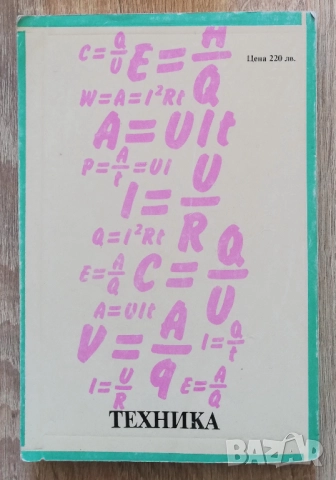 C = Q/U
E = A/Q
Цена 220 лв.
W = A = I²Rt
A = UIt
P = A/t = UI
I = U/R
Q = I²Rt
E = A/Q
C = Q/U
A = UIt
V = A/q
I = Q/t
I = U/R
E = A/Q
ТЕХНИКА
BAZAR